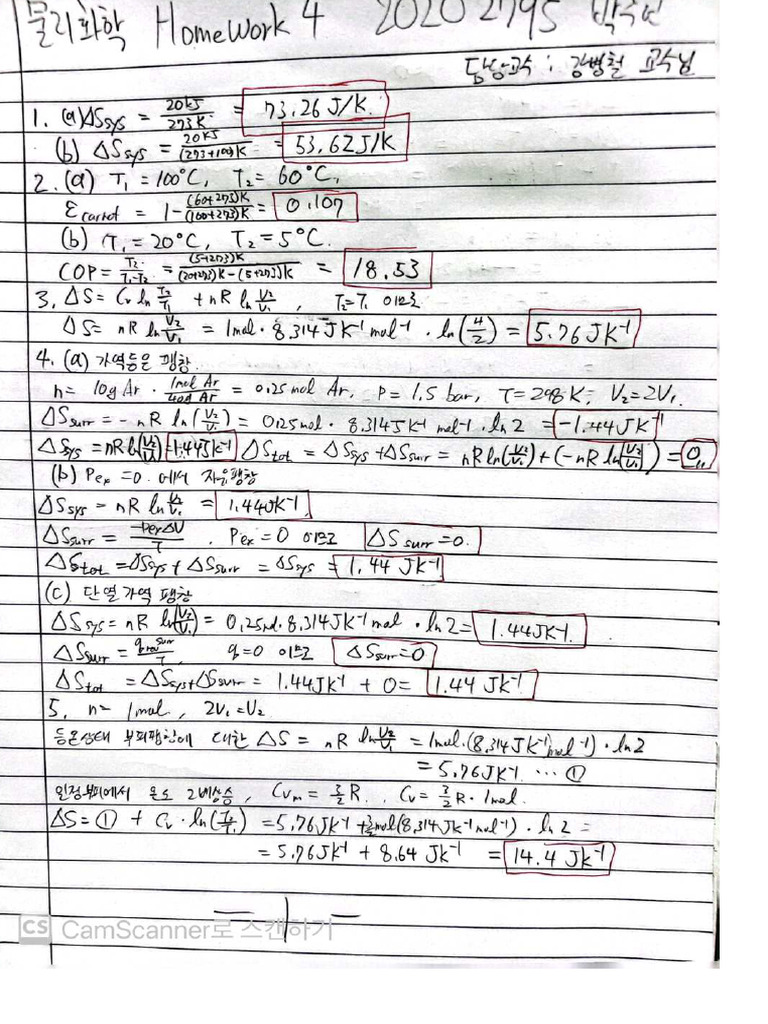 물리화학 Homework 4 20202795 박주연
담당교수 : 강병철 교수님
1. (a) ΔSsys = 20kJ/273K = 73.26 J/K.
(b) ΔSsys = 20kJ/(273+100)K = 53.62 J/K
2. (a) T₁ = 100°C, T₂ = 60°C.
εcarnot = 1 - (60+273)K/(100+273)K = 0.107
(b) T₁ = 20°C, T₂ = 5°C.
COP = T₂/T₁-T₂ = (5+273)K/(20+273)K-(5+273)K = 18.53
3. ΔS = Cv ln T₂/T₁ + nR ln V₂/V₁ , T₂=T₁ 이므로
ΔS = nR ln V₂/V₁ = 1mol · 8.314 JK⁻¹ mol⁻¹ · ln(4/2) = 5.76 JK⁻¹
4. (a) 가역등온 팽창.
n = 10g Ar · 1mol Ar/40g Ar = 0.25 mol Ar. P = 1.5 bar, T = 298K, V₂=2V₁.
ΔSsurr = -nR ln(V₂/V₁) = 0.25mol · 8.314 JK⁻¹ mol⁻¹ · ln 2 = -1.44 JK⁻¹
ΔSsys = nR ln(V₂/V₁) = 1.44 JK⁻¹ ΔStot = ΔSsys + ΔSsurr = nR ln(V₂/V₁) + (-nR ln(V₂/V₁)) = 0
(b) Pex = 0. 에서 자유팽창
ΔSsys = nR ln V₂/V₁ = 1.44 JK⁻¹.
ΔSsurr = -PexΔV/T . Pex = 0 이므로 ΔSsurr = 0.
ΔStot = ΔSsys + ΔSsurr = ΔSsys = 1.44 JK⁻¹
(c) 단열가역 팽창
ΔSsys = nR ln(V₂/V₁) = 0.25mol · 8.314 JK⁻¹ mol · ln 2 = 1.44 JK⁻¹.
ΔSsurr = qrev surr/T q=0 이므로 ΔSsurr = 0
ΔStot = ΔSsys + ΔSsurr = 1.44 JK⁻¹ + 0 = 1.44 JK⁻¹
5. n = 1mol, 2V₁ = V₂
등온상태 부피팽창에 대한 ΔS = nR ln V₂/V₁ = 1mol · (8.314 JK⁻¹ mol⁻¹) · ln 2
= 5.76 JK⁻¹ ··· ①
일정부피에서 온도 2배상승, Cvm = 3/2 R. Cv = 3/2 R · 1mol.
ΔS = ① + Cv · ln(T₂/T₁) = 5.76 JK⁻¹ + 3/2 mol (8.314 JK⁻¹ mol⁻¹) · ln 2 =
= 5.76 JK⁻¹ + 8.64 JK⁻¹ = 14.4 JK⁻¹
- 1 -
CS CamScanner로 스캔하기